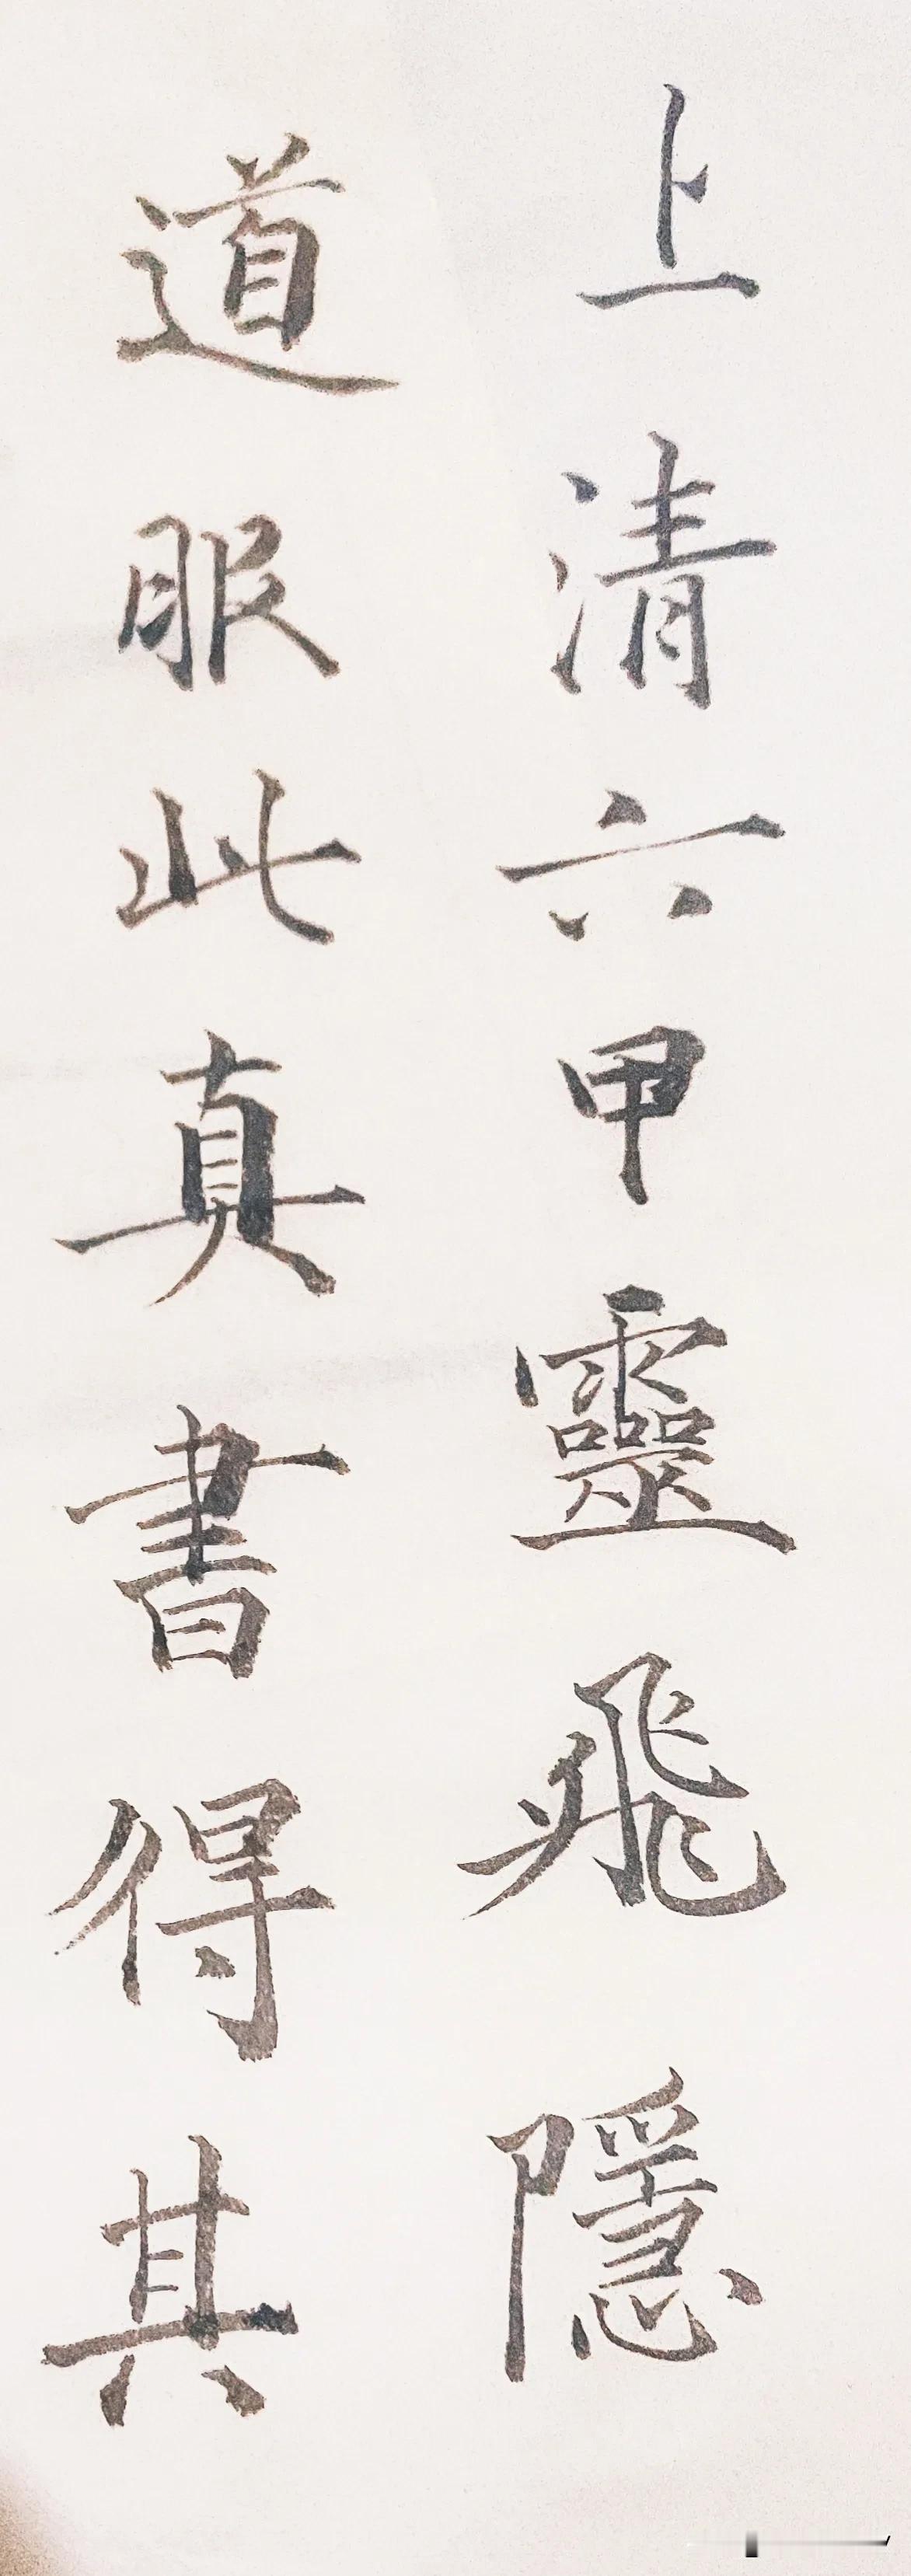 上清六甲靈飛隱
道服此真書得其